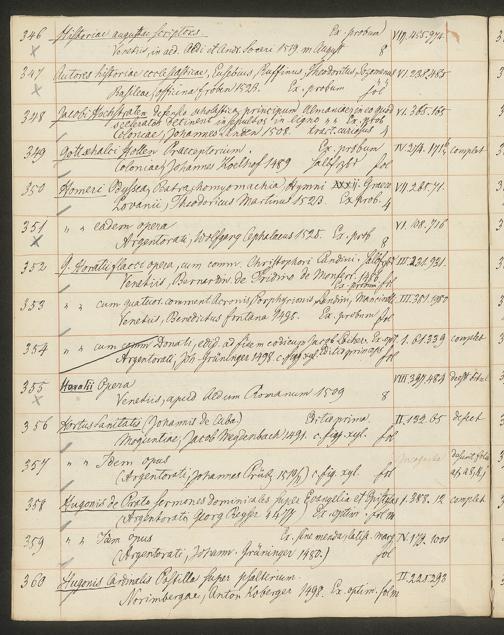 346 Historiae augustae scriptores. Ex. probum VII, 455,974.
Venetiis, in aed. Aldi et Andr. Soceri 1519. m August 8
347 Autores historiae ecclesiasticae, Eusebius, Ruffinus, Theodoritus, Sozomenus VI. 232,485
Basileae, officina Froben 1523. Ex. probum fol
348 Jacobi Hochstraten defensio scholastica principum Almaniae in eo quod VI. 365.165
sceleratos detinent insepultos in ligno Ex. prob
Coloniae, Johannes Landen 1508. tract. curiosus 4
349 Gottschalci Hollen Praeceptorium. Ex. probum complet
Coloniae, Johannes Koelhof 1489 fol
350 Homeri Odyssea, Batrachomyomachia, Hymni XXXII. Graece VII. 265.71.
Lovanii, Theodoricus Martinus 1523. Ex prob. 4
351 " " eadem opera VI. 108,716
Argentorati, Wolfgang Cephalaeus 1525. Ex. prob 8
352 Q. Horatii flacci opera, cum comm. Christophori Landini. III. 231,931
Venetiis, Bernardin. de Tridino de Monferr. 1486
Ex. probum fol
353 " " cum quatuor comment Acronis, Porphyrionis Landin, Mancinelli III. 351.950
Venetiis, Benedictus fontana 1498. Ex. probum fol
354 " " cum comm Donati, Jacob Locher. 1. 61339 complet
Argentorati, Joh. Grüninger 1498. c. figg xyl. Editio princeps fol
355 Horatii Opera VIII 397.484
Venetiis, apud Aldum Romanum 1509 8
356 Hortus Sanitatis (Johannis de Cuba) Editio prima. II. 132. 65 defect
Moguntiae, Jacob Meydenbach 1491. c. figg xyl. fol
357 " " Idem opus
(Argentorati, Johannes Prüss) c. fig xyl. fol
358 Hugonis de Prato sermones dominicales super Evangelia et Epistolas 1. 388. 12 complet
(Argentorati, Georg Reyser) Ex. optim. fol m
359 " " Idem opus Ex. sine menda, latiss. marg IV. 179. 1001
(Argentorati, Johann. Grüninger 1480.) fol
360 Hugonis Cardinalis Postilla super psalterium. II. 225,293
Norimbergae, Anton Koberger 1498. Ex. optim. fol m